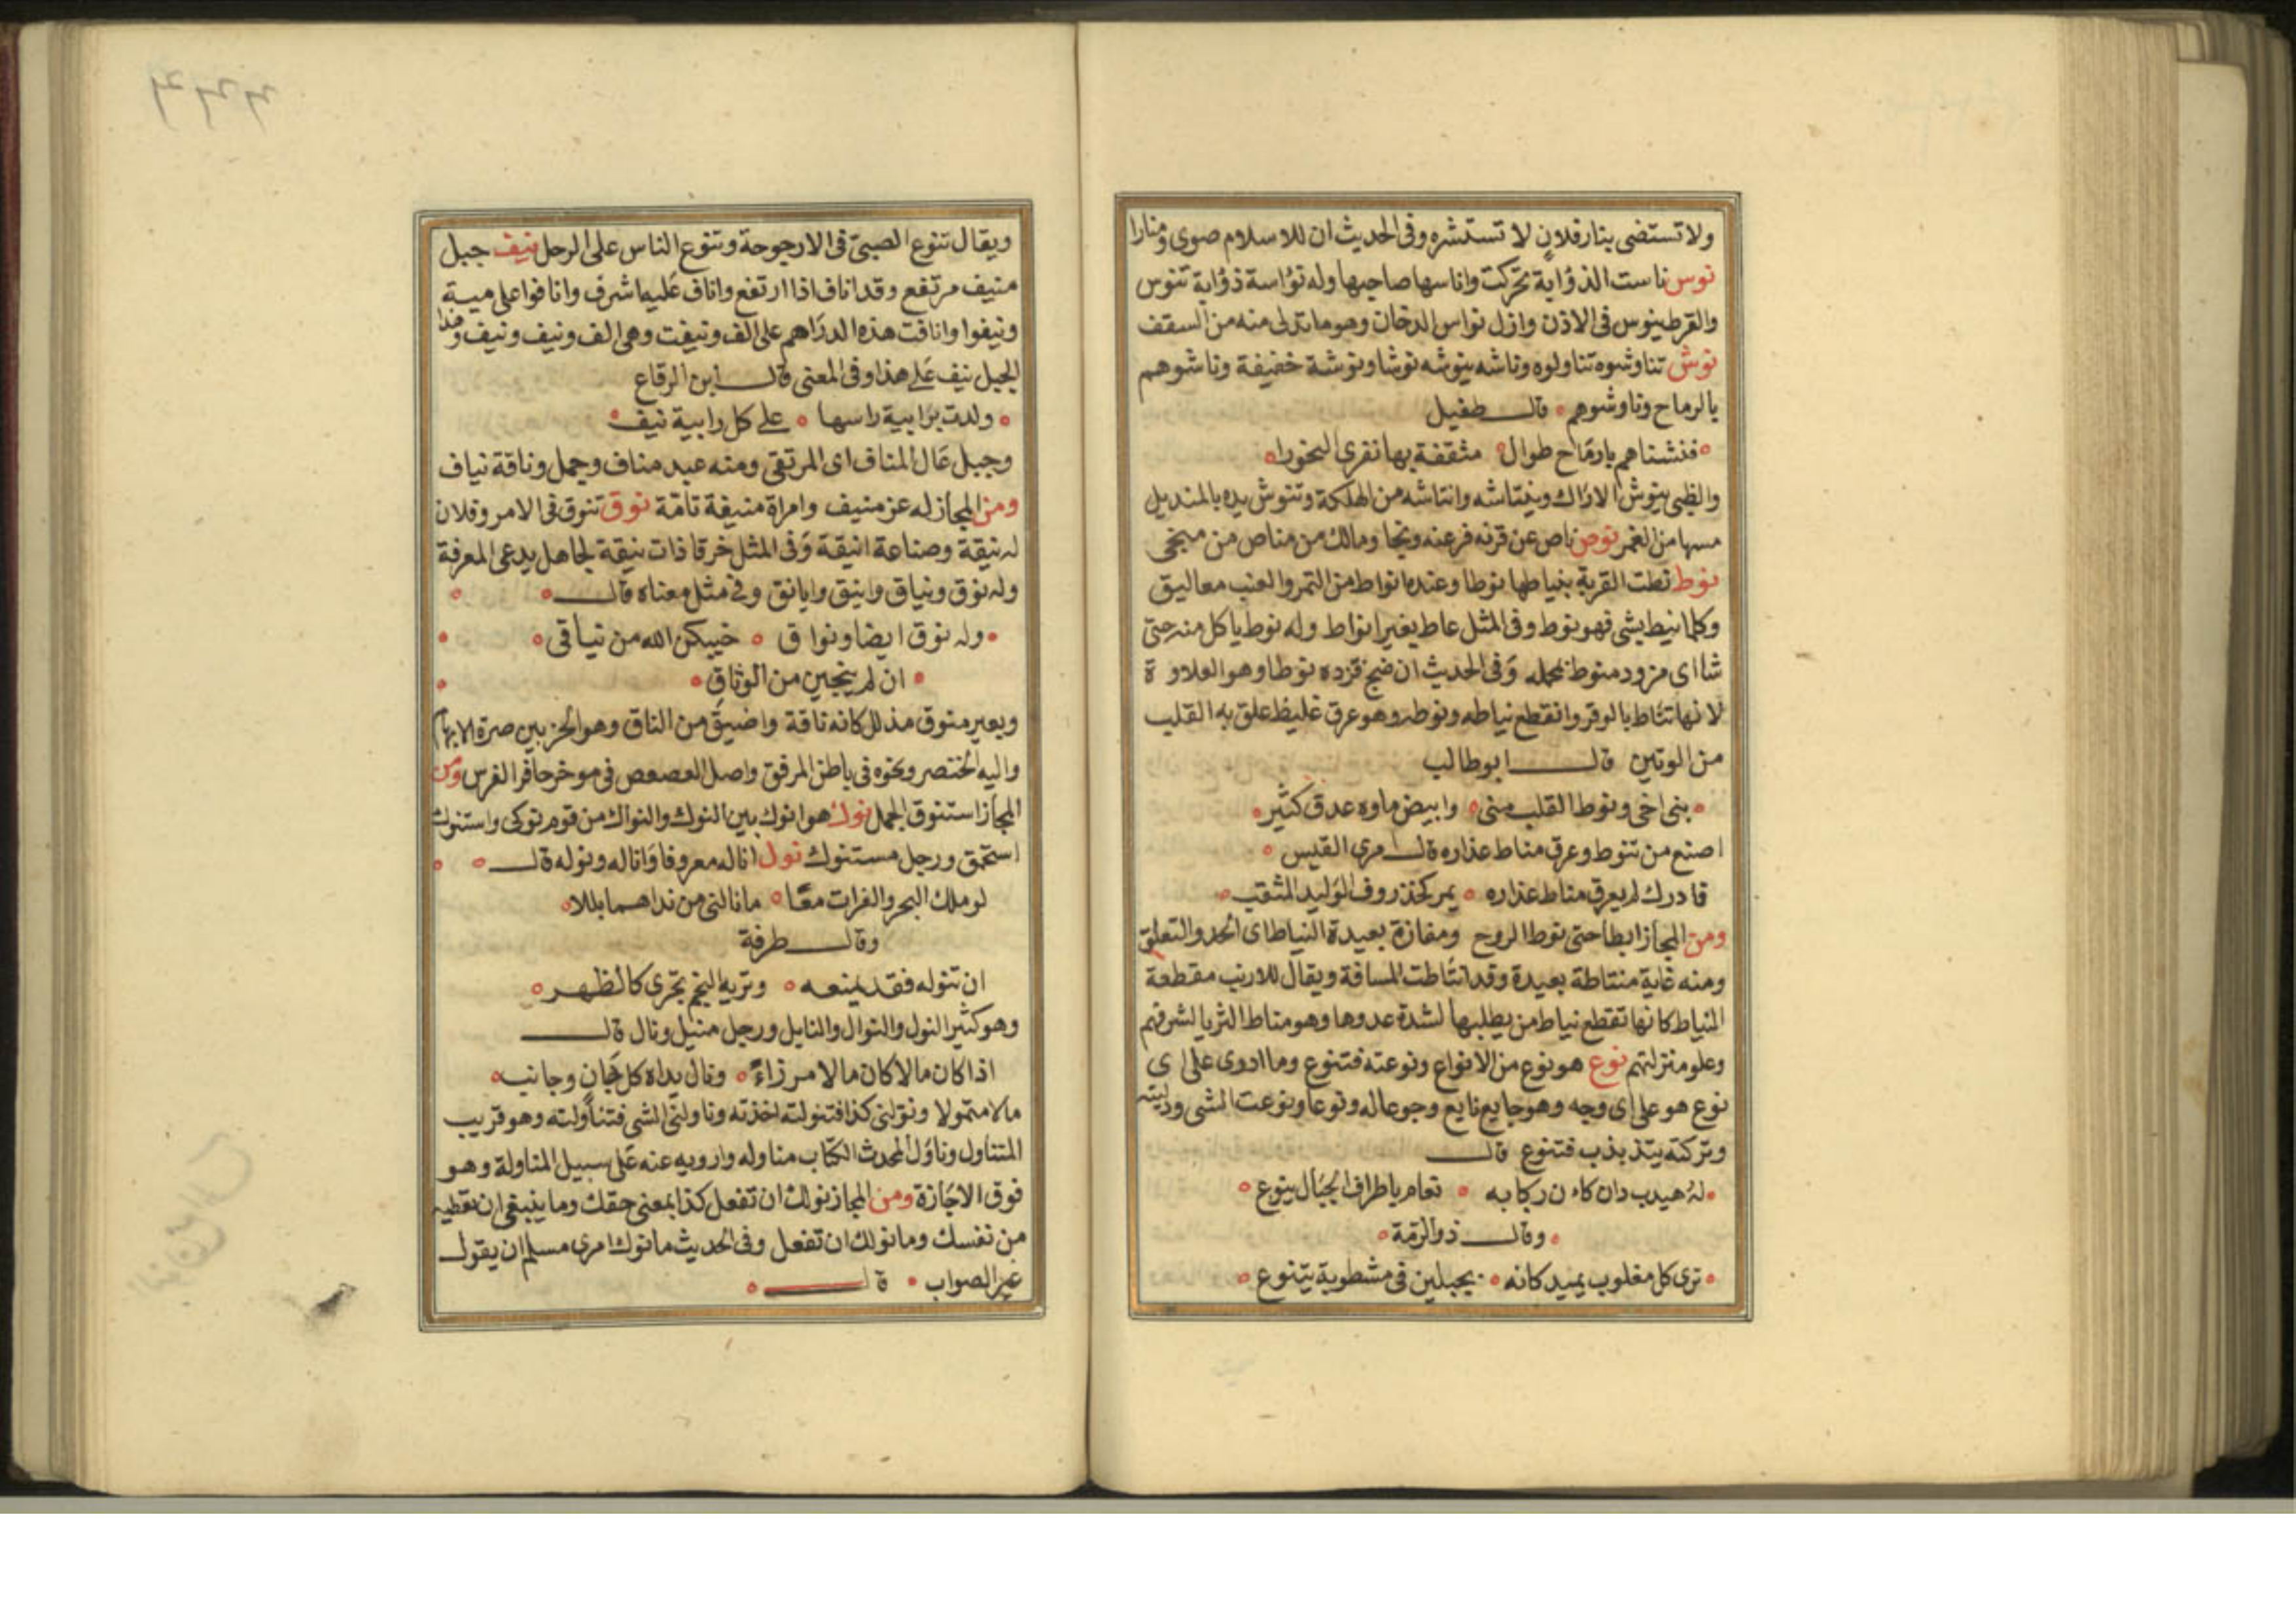 ولا تستضى بنار فلان لا تستشره وفى الحديث ان للاسلام صوى ومنارا
نوس ناست الذؤابة تحركت واناسها صاحبها وله نواسة ذؤابة تنوس
والقرط ينوس فى الاذن وازل نواس الدخان وهو ما تدلى منه من السقف
نوش تناوشوه تناولوه وناشه ينوشه نوشا ونوشة خفيفة وناشوهم
بالرماح وناوشوهم قال طفيل
فنشناهم بارماح طوال مثقفة بها نفرى النحورا
والظبى ينوش الاراك وينتاشه وانتاشه من الهلكة وتنوش يده بالمنديل
مسها من الغمر نوص ناص عن قرنه فر عنه ونجا ومالك من مناص من منجى
نوط نطت القربة بنياطها نوطا وعنده انواط من التمر والعنب معاليق
وكلما نيط بشى فهو نوط وفى المثل عاط بغير انواط وله نوط ياكل منه حتى
شا اى مزود منوط بمحمله وفى الحديث ان ضج فزده نوطا وهو العلاوة
لانها تناط بالوقر وانقطع نياطه ونوطه وهو عرق غليظ علق به القلب
من الوتين قال ابو طالب
بنى اخى ونوط القلب منى وابيض ماوه غدق كثير
اصنع من تنوط وعرق مناط عذاره قال امرى القيس
فادرك لم يعرق مناط عذاره يمر كخذروف الوليد المثقب
ومن المجاز ابطا حتى نوط الروح ومفازة بعيدة النياط اى الحد والتعلق
ومنه غاية منتاطة بعيدة وقد انتاطت المسافة ويقال للارنب مقطعة
النياط كانها تقطع نياط من يطلبها لشدة عدوها وهو مناط الثريا لشرفهم
وعلو منزلتهم نوع هو نوع من الانواع ونوعته فتنوع وما ادرى على اى
نوع هو على اى وجه وهو جايع نايع وجوعا له ونوعا ونوعت الشى ودليته
وتركته يتذبذب فتنوع قال
له هيدب دان كان ركابه نعام باطراف الجبال ينوع
وقال ذو الرمة
ترى كل مغلوب يميد كانه بحبلين فى مشطوبة يتنوع
ويقال تنوع الصبى فى الارجوحة وتنوع الناس على الرحل نيف جبل
منيف مرتفع وقد اناف اذا ارتفع واناف عليها شرف وانافوا على مية
ونيفوا وانافت هذه الدراهم على الف ونيفت وهى الف ونيف ونيف وهذا
الجبل نيف على هذا وفى المعنى قال ابن الرقاع
ولدت برابية راسها على كل رابية نيف
وجبل عال المناف اى المرتقى ومنه عبد مناف وجمل وناقة نياف
ومن المجاز له عز منيف وامراة منيفة تامة نوق تنوق فى الامر وفلان
له نيقة وصناعة انيقة وفى المثل خرقا ذات نيقة لجاهل يدعى المعرفة
وله نوق ونياق وانيق وايانق وفى مثل معناه قال
وله نوق ايضا ونواق خيبكن الله من نياقى
ان لم ينجين من الوثاق
وبعير منوق مذلل كانه ناقة واضيق من الناق وهو الحز بين ضرة الابهام
والية الخنصر ونحوه فى باطن المرفق واصل العصعص فى موخر حافر الفرس ومن
المجاز استنوق الجمل نوك هو انوك بين النوك والنواك من قوم نوكى واستنوك
استحمق ورجل مستنوك نول اناله معروفا واناله ونوله قال
لو ملك البحر والفرات معا ما نالنى من نداهما بللا
وقال طرفة
ان تنوله فقد يمنعه وتريه النجم يجرى كالظهر
وهو كثير النول والنوال والنايل ورجل منيل ونال قال
اذا كان مالا كان مالا مرزاء ونال يداه كل جان وجانبه
مالا متمولا ونولنى كذا فتنولته اخذته وناولنى الشى فتناولته وهو قريب
المتناول وناول المحدث الكتاب مناوله وارويه عنه على سبيل المناولة وهو
فوق الاجازة ومن المجاز نولك ان تفعل كذا بمعنى حقك وما ينبغى ان تعطيه
من نفسك وما نولك ان تفعل وفى الحديث ما نول امرى مسلم ان يقول
غير الصواب قال